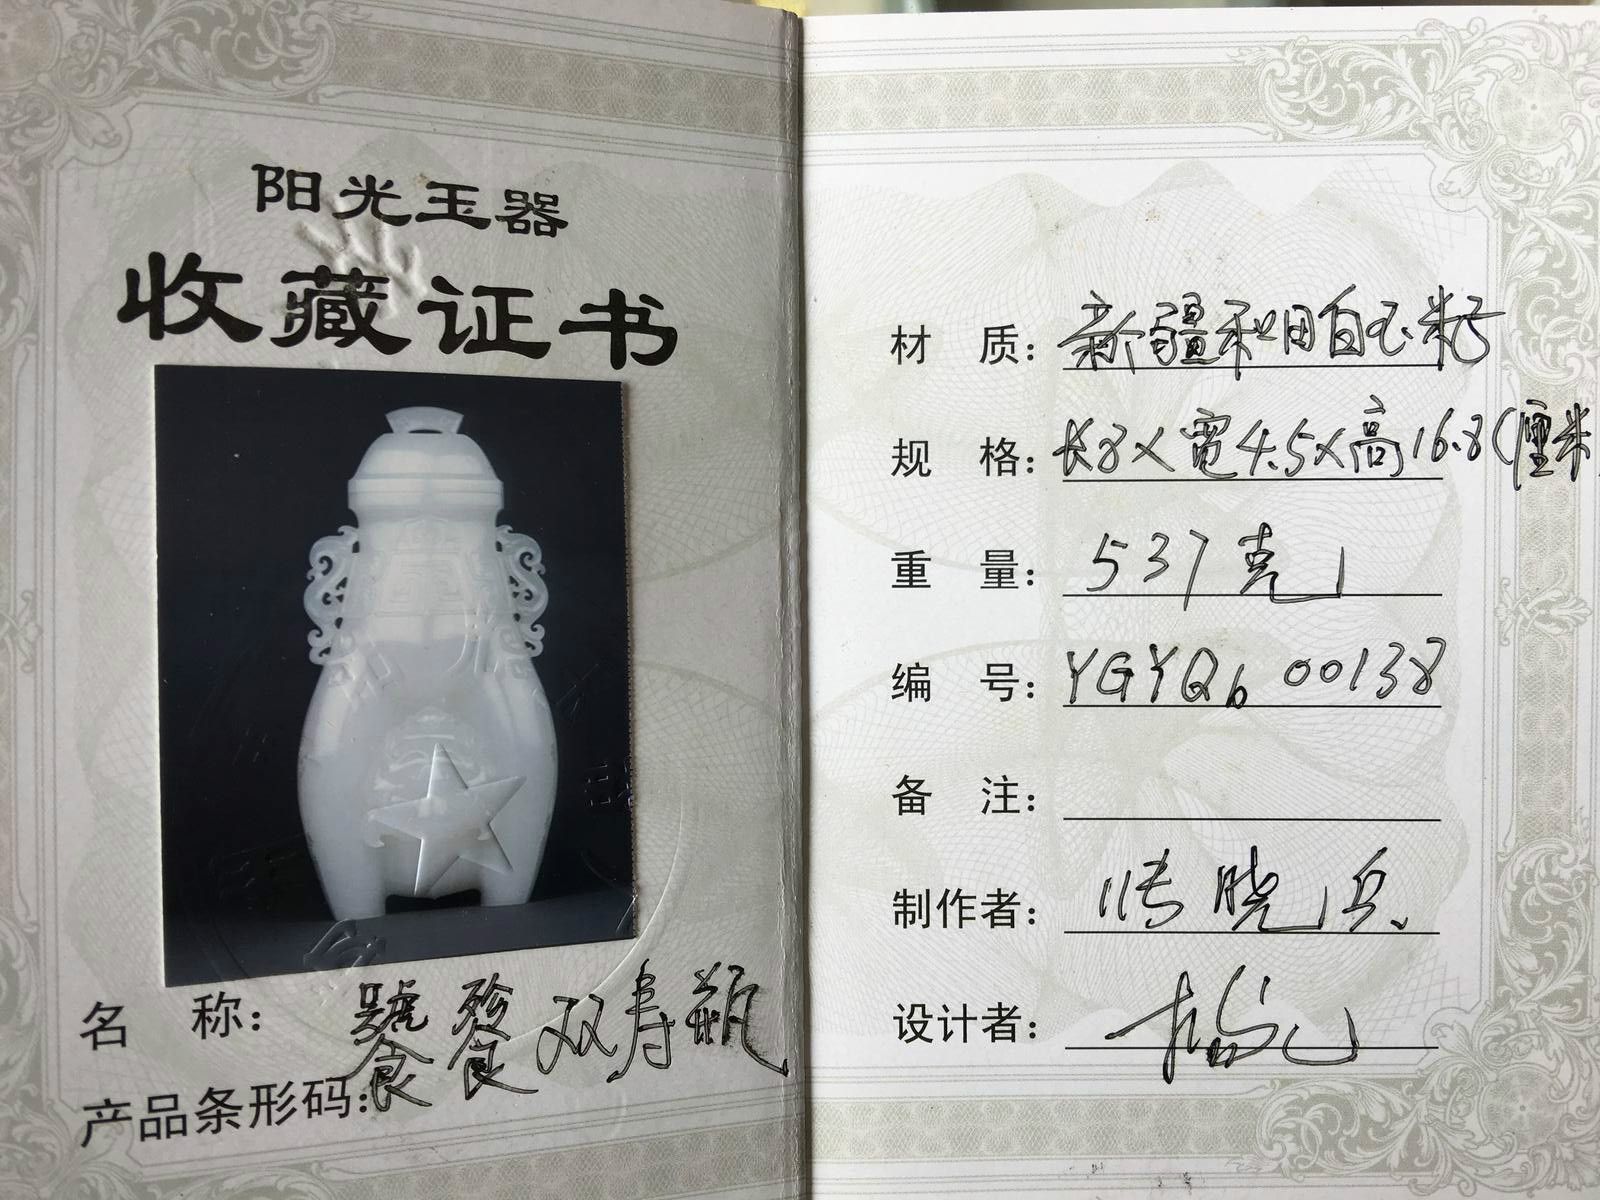 阳光玉器
收藏证书
名 称: 饕餮双寿瓶
产品条形码:
材 质: 新疆和田白玉籽
规 格: 长8×寬4.5×高16.8(厘米)
重 量: 537克
编 号: YGYQb 00138
备 注:
制作者: 晓兵
设计者: